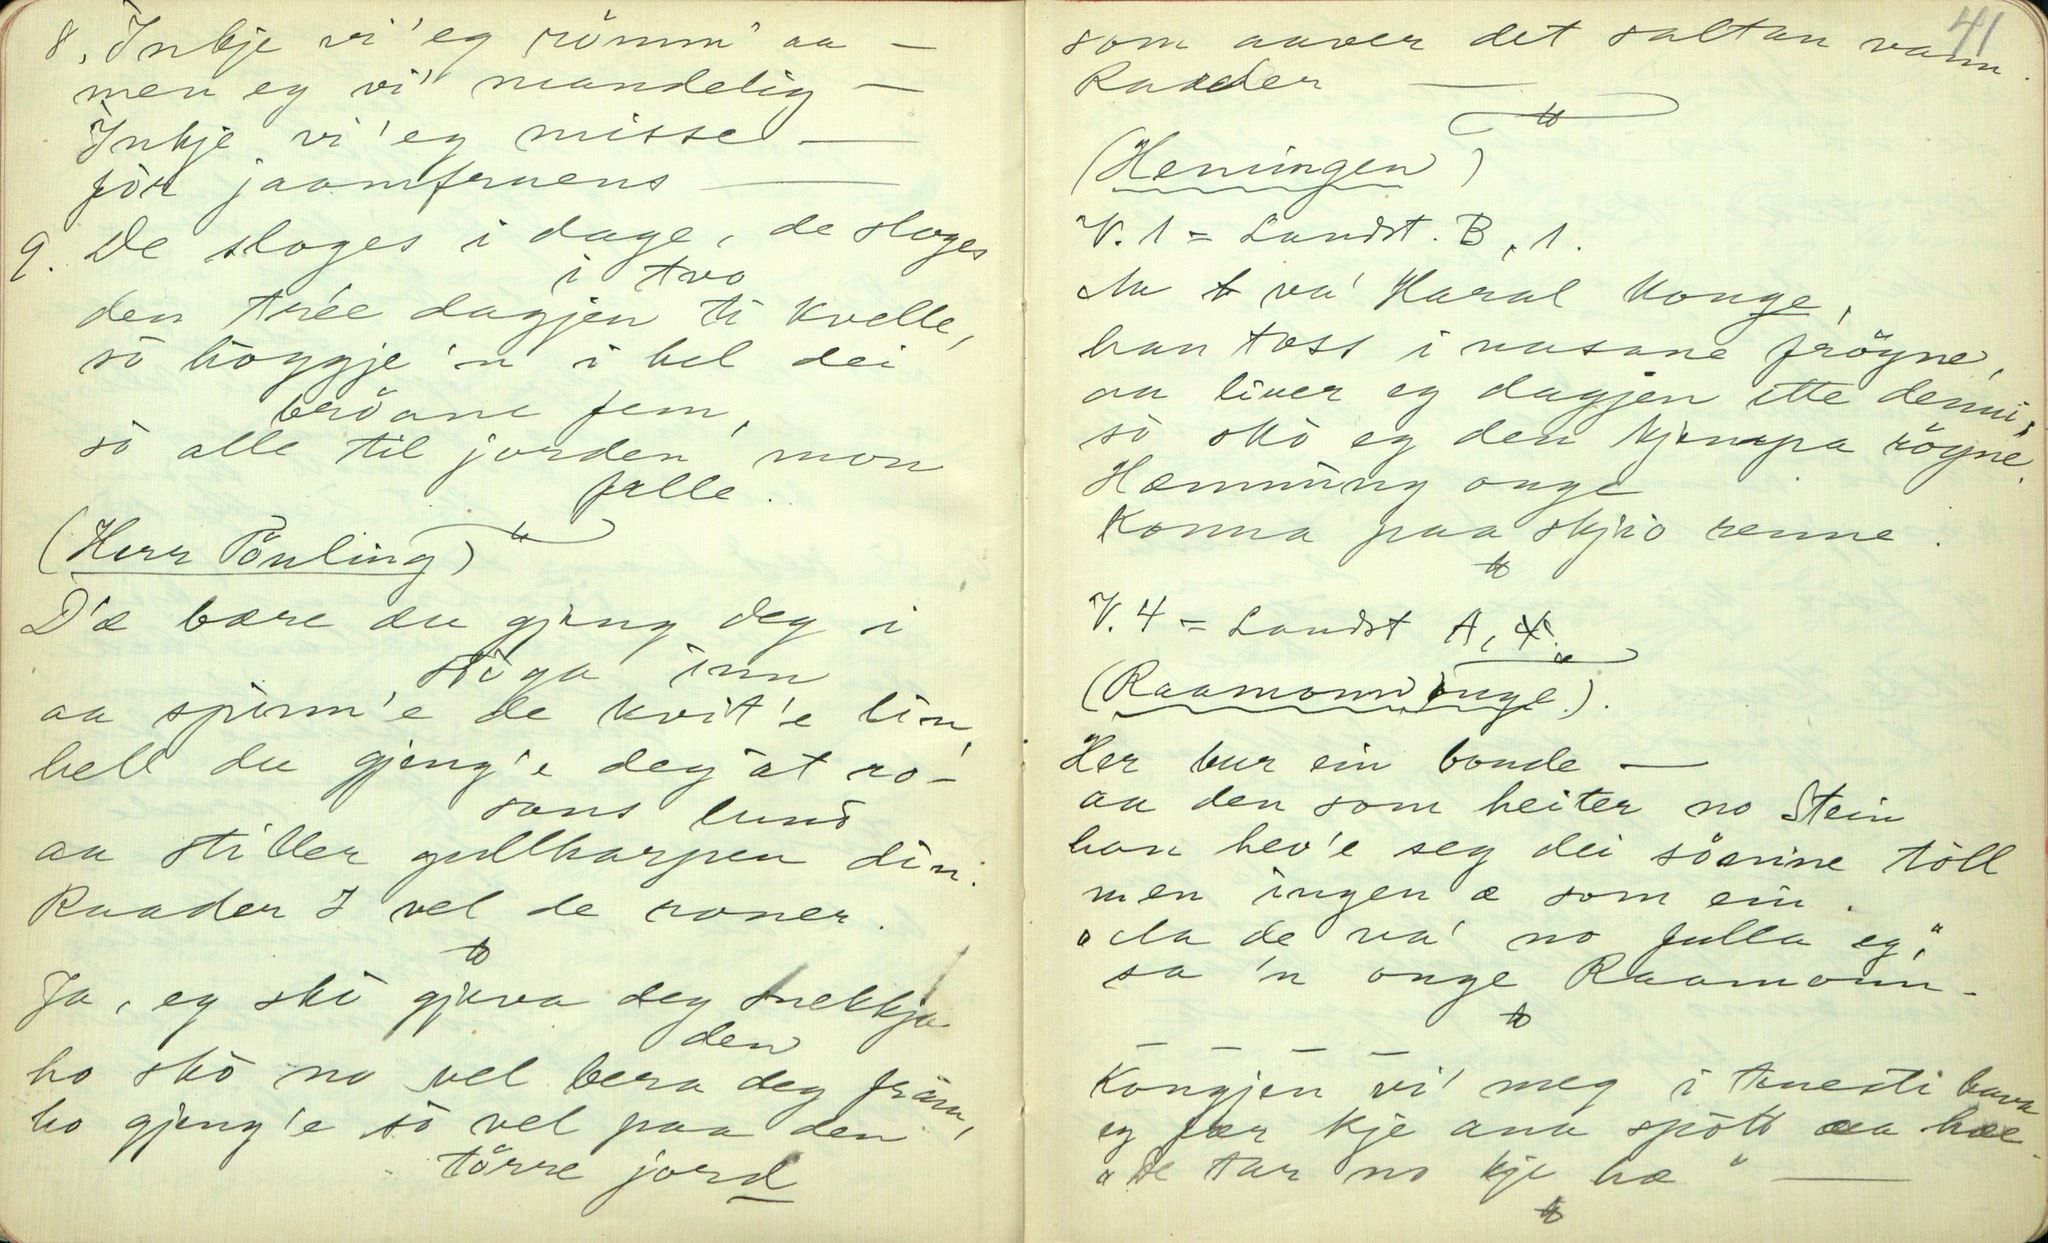 8. Inkje vi' eg römm' aa —
men eg vi' mandelig —
Inkje vi' eg misse —
för jaamfruens —
9. De sloges i dage, de sloges
i tvo
den trée dagjen ti kvelle,
så höggje 'n i hel dei
bröane fem,
så alle til jorden mon
falle.
(Herr Pönling)
D'æ bære du gjeng deg i
stöga inn
aa spinn'e de kvit'e lin,
hell du gjeng'e deg åt ro-
sons lund
aa stiller gullharpen din.
Raader I vel de roner.
Ja, eg skö gjeva deg snekkja
den
ho skö no vel bera deg fram,
ho gjeng'e så vel paa den
törre jord
41
som aaver det saltan vann.
Raader —
(Hemingen)
V. 1 = Landst. B, 1.
Aa va' Haral konge,
han toss i nasane fröyne,
aa liver eg dagjen ette denni,
så skö eg den kjempa röyne.
Hæmming onge
Konna paa skjio renne.
V. 4 = Landst A, 4.
(Raamonn onge).
Her bur ein bonde —
aa den som heiter no Stein
han hev'e seg dei sönine töll
men ingen æ som ein.
"Aa de va' no fulla eg,"
sa 'n onge Raamonn.
— — — —
Kongjen vi' meg i tenesti hava
eg fær kje ana spött aa hæ
"De tar no kje hæ" —